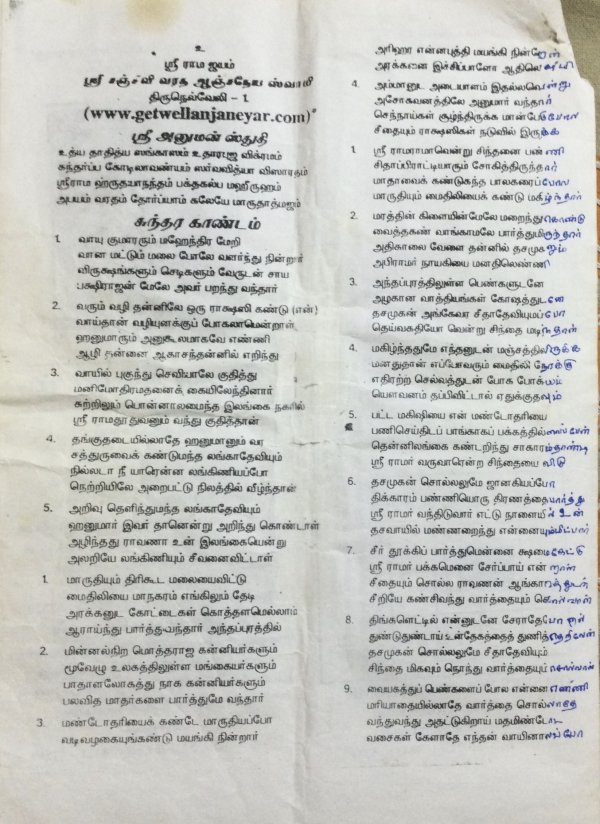 உ
ஸ்ரீ ராம ஜயம்
ஸ்ரீ சஞ்சீவி வரத ஆஞ்சநேய ஸ்வாமி
திருநெல்வேலி - 1.
(www.getwellanjaneyar.com)
ஸ்ரீ அனுமன் ஸ்துதி
உத்ய தாதித்ய ஸங்காஸம் உதாரபுஜ விக்ரமம்
கந்தர்ப்ப கோடிலாவண்யம் ஸர்வவித்யா விஸாரதம்
ஸ்ரீராம ஹ்ருதயாநந்தம் பக்தகல்ப மஹீருஹம்
அபயம் வரதம் தோர்ப்யாம் கலயே மாருதாத்மஜம்
சுந்தர காண்டம்
1. வாயு குமாரரும் மஹேந்திர மேறி
வான மட்டும் மலை போலே வளர்ந்து நின்றார்
விருக்ஷங்களும் செடிகளும் வேருடன் சாய
பக்ஷிராஜன் மேலே அவர் பறந்து வந்தார்
2. வரும் வழி தன்னிலே ஒரு ராக்ஷஸி கண்டு (என்)
வாய்தான் வழியுனக்குப் போகலாமென்றாள்
ஹனுமாரும் அனுகூலமாகவே எண்ணி
ஆழி தன்னை ஆகாசந்தனில் எறிந்து
3. வாயில் புகுந்து செவியாலே குதித்து
மணிமோதிரமதனைக் கையிலேந்தினார்
சுற்றிலும் பொன்னாலமைந்த இலங்கை நகரில்
ஸ்ரீ ராமதூதுவனும் வந்து குதித்தான்
4. தங்குதடையில்லாதே ஹனுமானும் வர
சத்துருவைக் கண்டுமந்த லங்காதேவியும்
நில்லடா நீ யாரென்ன லங்கிணியப்போ
நெற்றியிலே அறைபட்டு நிலத்தில் வீழ்ந்தாள்
5. அறிவு தெளிந்துமந்த லங்காதேவியும்
ஹனுமார் இவர் தானென்று அறிந்து கொண்டாள்
அழிந்தது ராவணா உன் இலங்கையென்று
அலறியே லங்கிணியும் சீவனைவிட்டாள்
1. மாருதியும் திரிகூட மலையைவிட்டு
மைதிலியை மாநகரம் எங்கிலும் தேடி
அரக்கனுட கோட்டைகள் கொத்தளமெல்லாம்
ஆராய்ந்து பார்த்து வந்தார் அந்தப்புரத்தில்
2. மின்னல்நிற மொத்தராஜ கன்னியர்களும்
மூவேழு உலகத்திலுள்ள மங்கையர்களும்
பாதாளலோகத்து நாக கன்னியர்களும்
பலவித மாதர்களை பார்த்துமே வந்தார்
3. மண்டோதரியைக் கண்டே மாருதியப்போ
வடிவழகையுங்கண்டு மயங்கி நின்றார்
அரிஹர என்னபுத்தி மயங்கி நின்றேன்
அரக்கனை இச்சிப்பாளோ ஆதிலெக்ஷிமி
4. அம்மானுட அடையாளம் இதல்லவென்று
அசோகவனத்திலே அனுமார் வந்தார்
செந்நாய்கள் சூழ்ந்திருக்க மான்பேடுபோல
சீதையும் ராக்ஷஸிகள் நடுவில் இருக்க
1. ஸ்ரீ ராமராமாவென்று சிந்தனை பண்ணி
சிதாப்பிராட்டியாரும் சோகித்திருந்தார்
மாதாவைக் கண்டுகந்த பாலகரைப்போல
மாருதியும் மைதிலியைக் கண்டு மகிழ்ந்தார்
2. மரத்தின் கிளையின்மேலே மறைந்துகொண்டு
வைத்தகண் வாங்காமலே பார்த்துமிருந்தார்
அதிகாலை வேளை தன்னில் தசமுகனும்
அபிராமர் நாயகியை மனதிலெண்ணி
3. அந்தப்புரத்திலுள்ள பெண்களுடனே
அழகான வாத்தியங்கள் கோஷத்துடனே
தசமுகன் அங்கேவர சீதாதேவியுமப்போ
தெய்வகதியோ வென்று சிந்தை மடிந்தாள்
4. மகிழ்ந்ததுமே எந்தனுடன் மஞ்சத்திலிருக்க
மனதுதான் எப்போவரும் மைதிலி நோக்கு
எதிரற்ற செல்வத்துடன் போக போக்யம்
யௌவனம் தப்பிவிட்டால் ஏதுக்குதவும்
5. பட்ட மகிஷியை என் மண்டோதரியை
பணிசெய்திடப் பாங்காகப் பக்கத்தில்வைப்பேன்
தென்னிலங்கை கண்டறிந்து சாகரம்தாண்டி
ஸ்ரீ ராமர் வருவாரென்ற சிந்தையைவிடு
6. தசமுகன் சொல்லலுமே ஜானகியப்போ
திக்காரம் பண்ணியொரு திரணத்தைபார்த்து
ஸ்ரீ ராமர் வந்திடுவார் எட்டு நாளையில் உன்
தசவாயில் மண்ணறைந்து என்னையுமீட்பார்
7. சீர் தூக்கிப் பார்த்துமென்னை க்ஷமைகேட்டு
ஸ்ரீ ராமர் பக்கமெனை சேர்ப்பாய் என்றாள்
சீதையும் சொல்ல ராவணன் ஆங்காரத்துடன்
சீறியே கண்சிவந்து வார்த்தையும் சொல்வான்
8. திங்களெட்டில் என்னுடனே சேராதேபோனால்
துண்டுதுண்டாய் உன்தேகத்தைத் துணித்தெறிவேன்
தசமுகன் சொல்லலுமே சீதாதேவியும்
சிந்தை மிகவும் நொந்து வார்த்தையும்சொல்வாள்
9. வையகத்துப் பெண்களைப் போல என்னை எண்ணி
மரியாதையில்லாதே வார்த்தை சொல்லாதே
வந்துவந்து அதட்டுகிறாய் மதமிண்டோட
வசைகள் கேளாதே எந்தன் வாயினாலப்போ